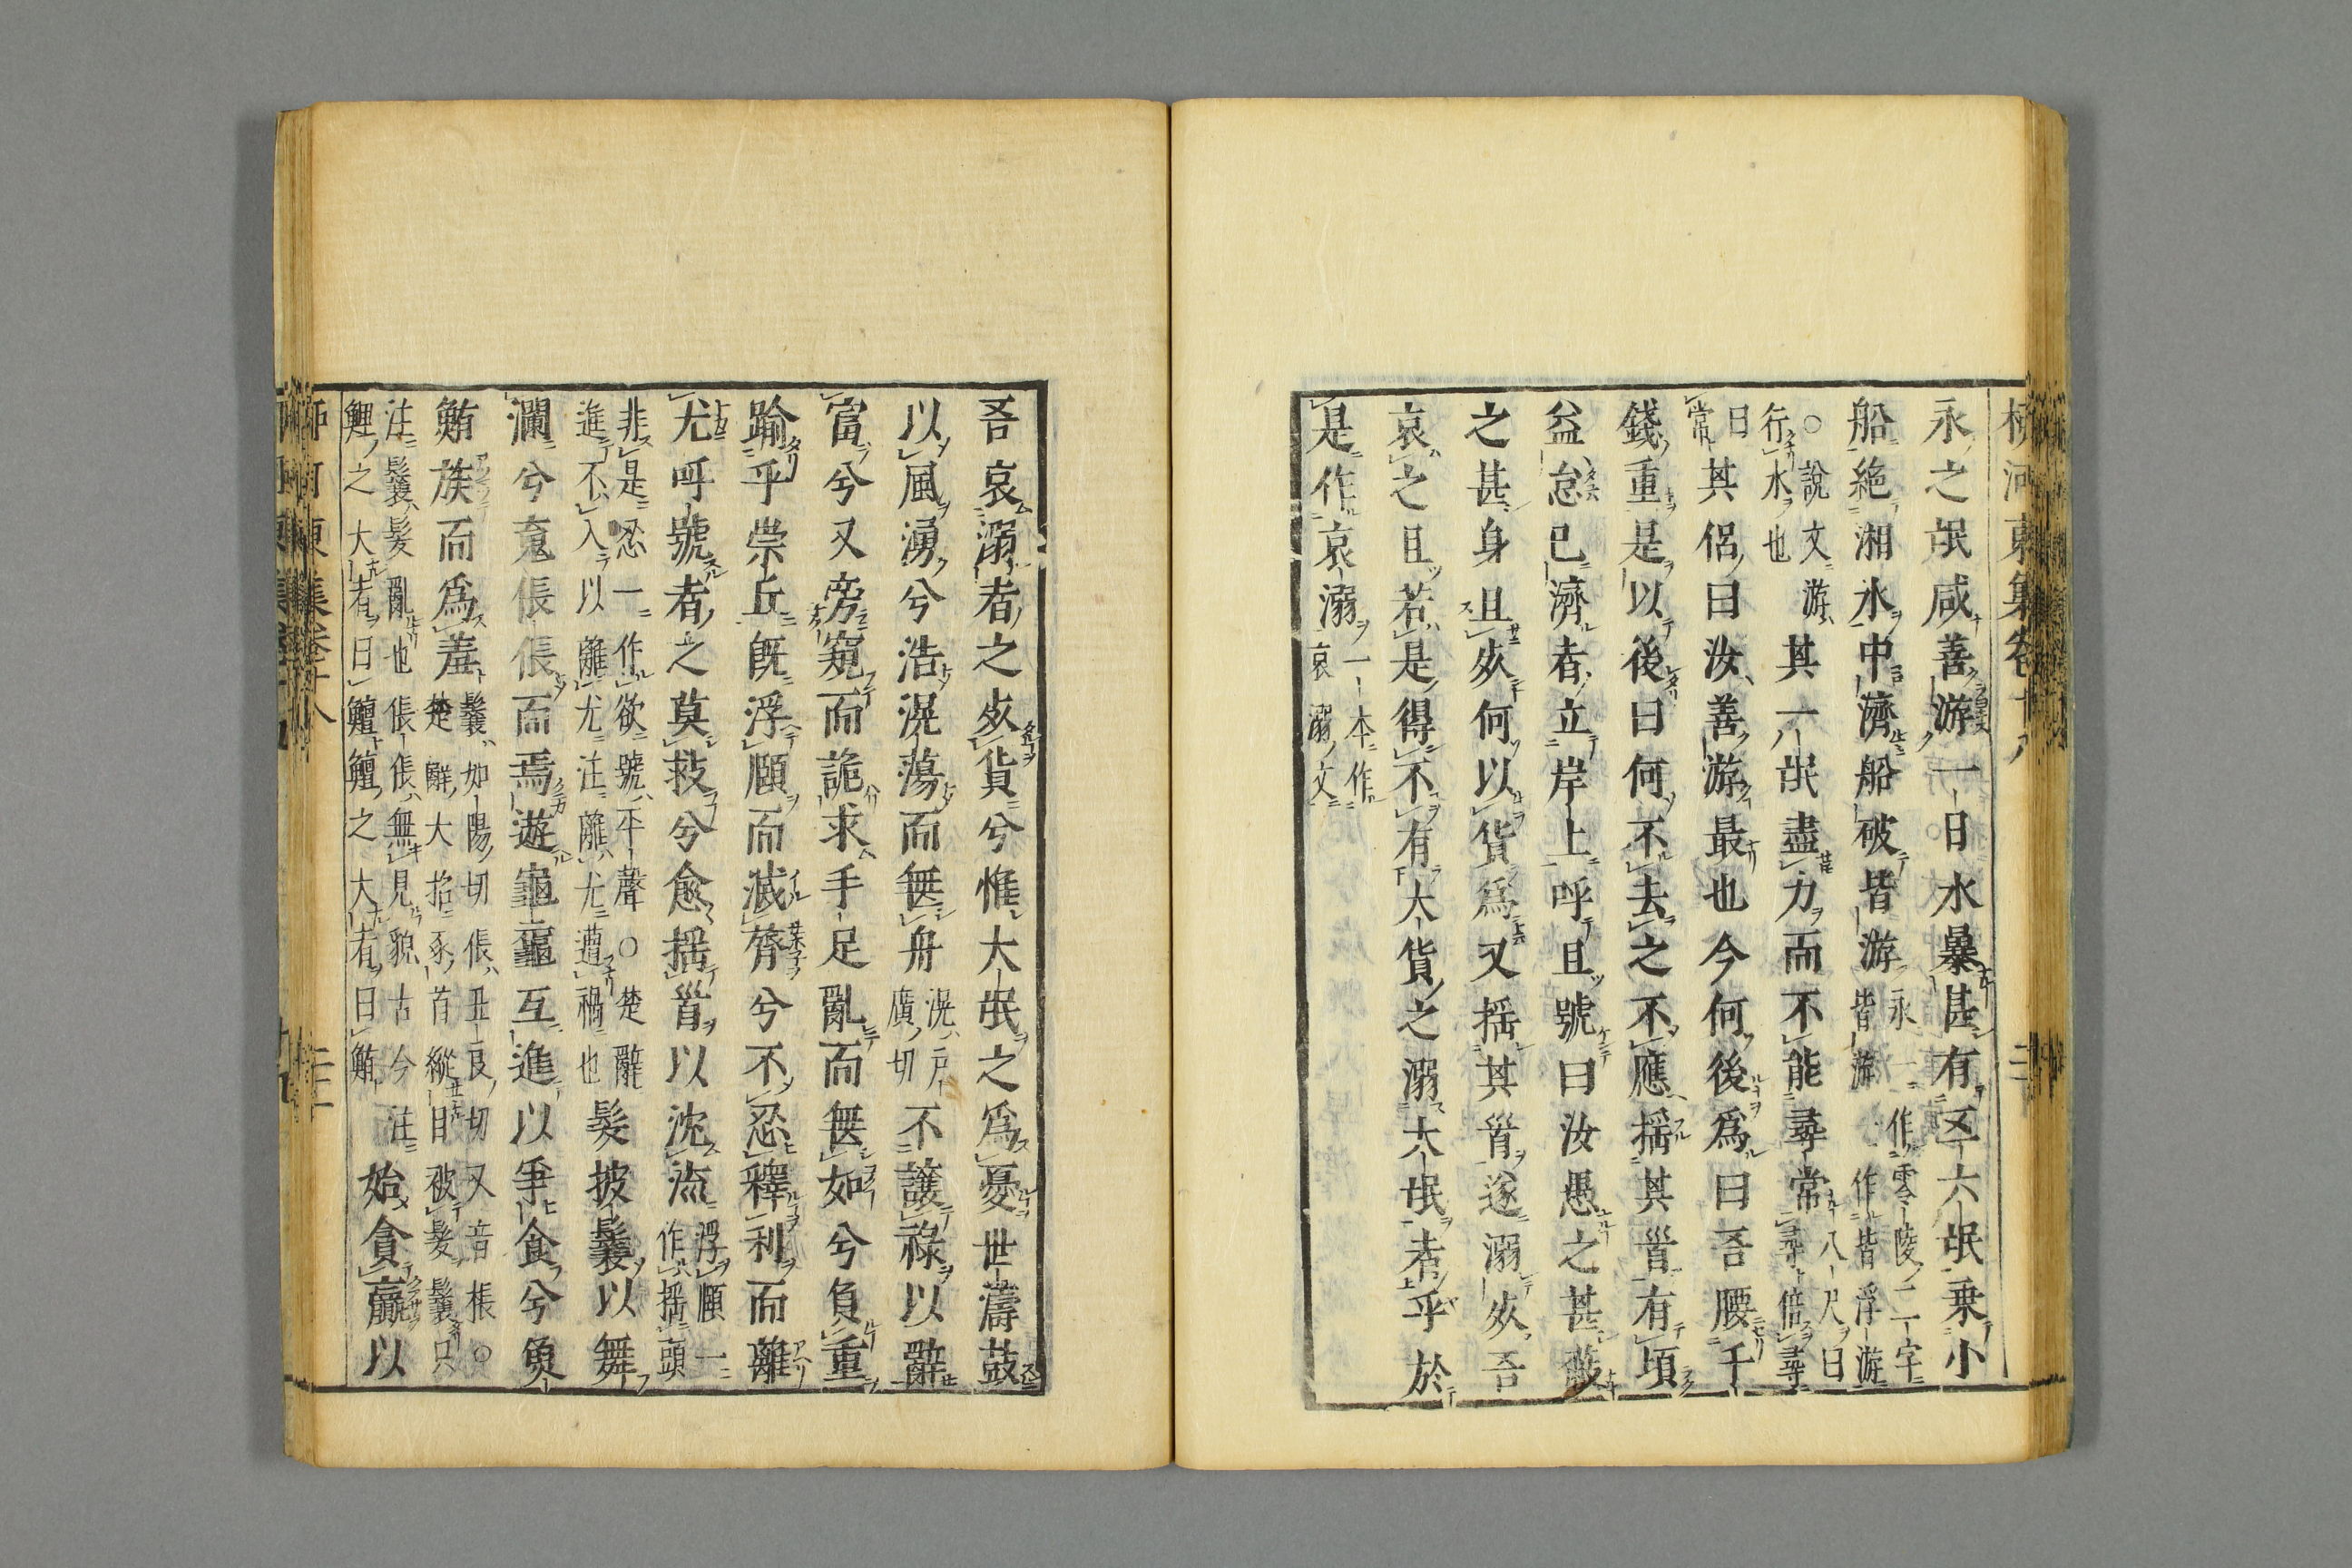 柳河東集卷十八
永之氓咸善游一日水暴甚有五六氓乗小
船絶湘水中濟船破皆游永一作零陵二字皆游一作皆浮游
○說文游行水也其一氓盡力而不能尋常八尺曰尋倍尋
曰常其侶曰汝善游最也今何後爲曰吾腰千
錢重是以後曰何不去之不應揺其首有頃
益怠已濟者立岸上呼且號曰汝愚之甚蔽
之甚身且死何以貨爲又揺其首遂溺死吾
哀之且若是得不有大貨之溺大氓者乎於
是作哀溺一本作哀溺文
吾哀溺者之死貨兮惟大氓之爲憂世濤鼓
以風湧兮浩滉蕩而無舟滉戸廣切不讓祿以辭
富兮又旁窺而詭求手足亂而無如兮負重
踰乎崇丘既浮頤而滅膂兮不忍釋利而離
尤呼號者之莫救兮愈揺首以沈流浮頤一作揺頭
非是忍一作欲號平聲○楚辭進不入以離尤注離尤遭禍也髮披鬤以舞
瀾兮魂倀倀而焉遊龜黿互進以爭食兮魚
鮪族而爲羞鬤如陽切倀丑良切又音棖○楚辭大招豕首縱目被髮鬤只
注鬤髮亂也倀倀無見貌古今注鯉之大者曰鱣鱣之大者曰鮪始貪贏以
柳河東集卷十八